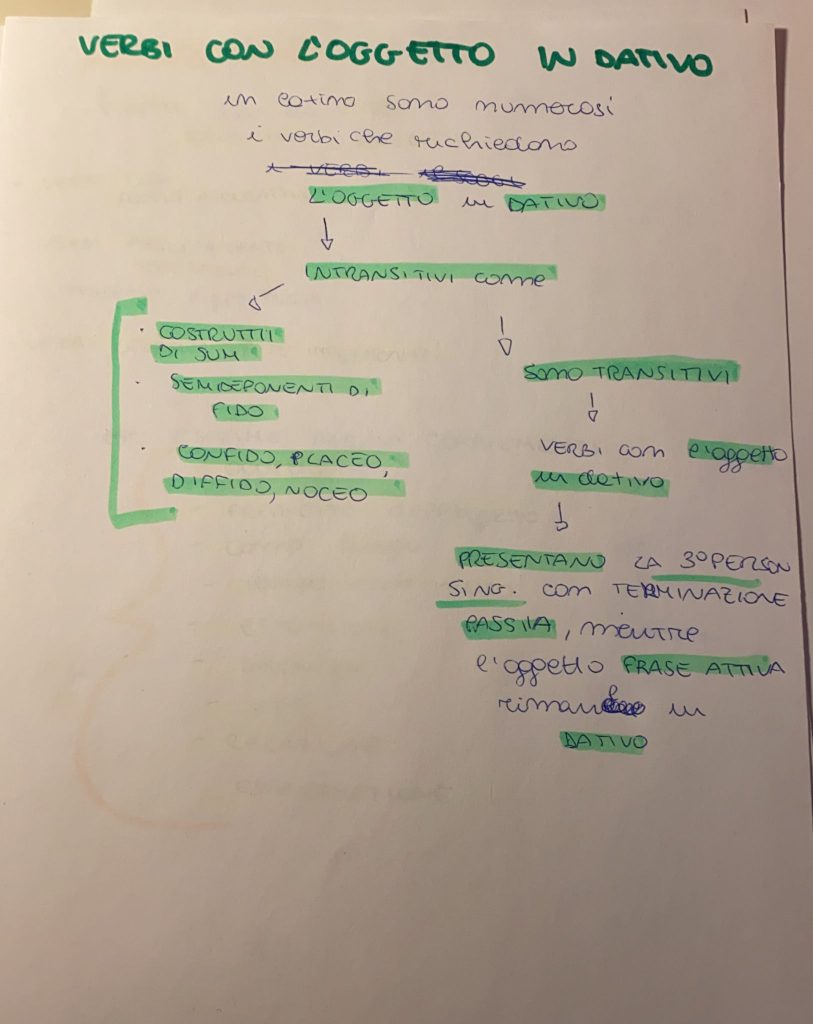 VERBI CON L'OGGETTO IN DATIVO
in latino sono numerosi
i verbi che richiedono
L'OGGETTO in DATIVO
INTRANSITIVI come
· COSTRUTTI
DI SUM
· SEMIDEPONENTI DI
FIDO
· CONFIDO, PLACEO,
DIFFIDO, NOCEO
Sono TRANSITIVI
VERBI con l'oggetto
in dativo
PRESENTANO LA 3° PERSON
SING. con TERMINAZIONE
PASSIVA, mentre
l'oggetto FRASE ATTIVA
in
DATIVO